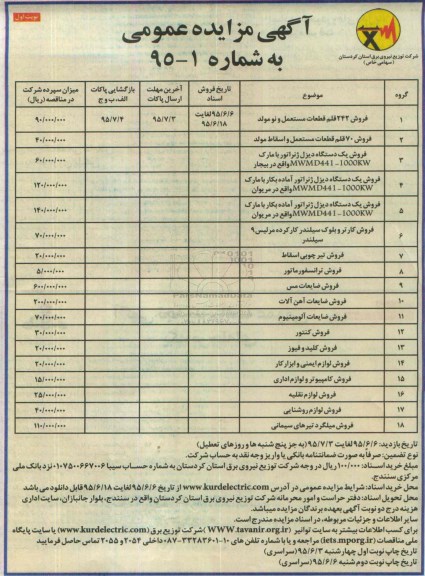 نوبت اول
آگهی مزایده عمومی
به شماره ۱-۹۵
شرکت توزیع نیروی برق استان کردستان
(سهامی خاص)
گروه | موضوع | تاریخ فروش اسناد | آخرین مهلت ارسال پاکات | بازگشایی پاکات الف، ب و ج | میزان سپرده شرکت در مناقصه (ریال)
۱ | فروش ۲۴۲ قلم قطعات مستعمل و نو مولد | ۹۵/۶/۶ لغایت ۹۵/۶/۱۸ | ۹۵/۷/۳ | ۹۵/۷/۴ | ۹۰/۰۰۰/۰۰۰
۲ | فروش ۷۰ قلم قطعات مستعمل و اسقاط مولد | ۴۰/۰۰۰/۰۰۰
۳ | فروش یک دستگاه دیزل ژنراتور با مارک MWMD441-1000KW واقع در بیجار | ۶۰/۰۰۰/۰۰۰
۴ | فروش یک دستگاه دیزل ژنراتور آماده بکار با مارک MWMD441-1000KW واقع در مریوان | ۱۲۰/۰۰۰/۰۰۰
۵ | فروش یک دستگاه دیزل ژنراتور آماده بکار با مارک MWMD441-1000KW واقع در مریوان | ۱۴۰/۰۰۰/۰۰۰
۶ | فروش کارتر و بلوک سیلندر کارکرده مرلیس ۹ سیلندر | ۷۰/۰۰۰/۰۰۰
۷ | فروش تیر چوبی اسقاط | ۲۰/۰۰۰/۰۰۰
۸ | فروش ترانسفورماتور | ۵/۰۰۰/۰۰۰
۹ | فروش ضایعات مس | ۶۰۰/۰۰۰/۰۰۰
۱۰ | فروش ضایعات آهن آلات | ۲۰۰/۰۰۰/۰۰۰
۱۱ | فروش ضایعات آلومینیوم | ۷۰/۰۰۰/۰۰۰
۱۲ | فروش کنتور | ۳۰/۰۰۰/۰۰۰
۱۳ | فروش کلید و فیوز | ۲۰/۰۰۰/۰۰۰
۱۴ | فروش لوازم ایمنی و ابزار کار | ۲۰/۰۰۰/۰۰۰
۱۵ | فروش کامپیوتر و لوازم اداری | ۱۵/۰۰۰/۰۰۰
۱۶ | فروش لوازم نقلیه | ۲۵/۰۰۰/۰۰۰
۱۷ | فروش لوازم روشنایی | ۴۰/۰۰۰/۰۰۰
۱۸ | فروش میلگرد تیرهای سیمانی | ۱۱۰/۰۰۰/۰۰۰
تاریخ بازدید: ۹۵/۶/۶ لغایت ۹۵/۷/۳ (به جز پنج شنبه ها و روزهای تعطیل)
نوع تضمین: صرفاً به صورت ضمانتنامه بانکی یا واریز وجه نقد به حساب شرکت.
مبلغ خرید اسناد: ۱۰۰/۰۰۰ ریال در وجه شرکت توزیع نیروی برق استان کردستان به شماره حساب سیبا ۰۱۰۷۵۰۰۶۶۷۰۰۶ نزد بانک ملی مرکزی سنندج.
محل خرید اسناد: شرایط مزایده عمومی در آدرس www.kurdelectric.com از تاریخ ۹۵/۶/۶ لغایت ۹۵/۶/۱۸ قابل دانلود می باشد
محل تحویل اسناد: دفتر حراست و امور محرمانه شرکت توزیع نیروی برق استان کردستان واقع در سنندج، بلوار جانبازان، سایت اداری
هزینه درج دو نوبت آگهی بعهده برندگان مزایده میباشد.
سایر اطلاعات و جزئیات مربوطه، در اسناد مزایده مندرج است.
برای کسب اطلاعات بیشتر به سایت توانیر (WWW.tavanir.org.ir) شرکت توزیع برق (www.kurdelectric.com) یا سایت پایگاه
ملی مناقصات (iets.mporg.ir) مراجعه و یا با شماره تلفن های ۱۰-۳۳۲۸۳۶۰۱-۰۸۷ داخلی ۲۰۵۴ و ۲۰۵۵ تماس حاصل فرمایید
تاریخ چاپ نوبت اول چهارشنبه ۹۵/۶/۳ (سراسری)
تاریخ چاپ نوبت دوم شنبه ۹۵/۶/۶ (سراسری)